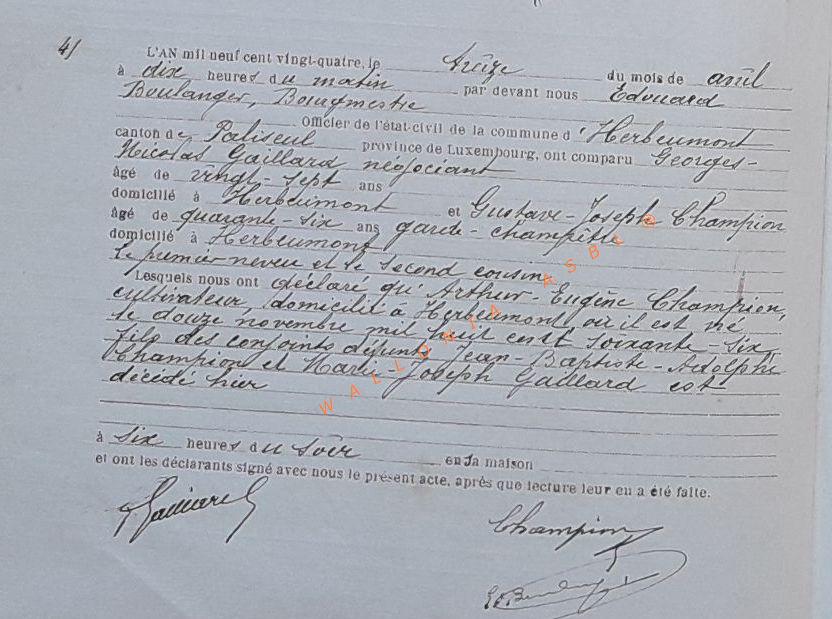 4/
L'AN mil neuf cent vingt-quatre, le treize du mois de avril
à dix heures du matin par devant nous Edouard
Boulanger, Bourgmestre
Officier de l'état-civil de la commune d'Herbeumont
canton de Paliseul province de Luxembourg, ont comparu Georges-
Nicolas Gaillard négociant
âgé de vingt-sept ans
domicilié à Herbeumont et Gustave-Joseph Champion
âgé de quarante-six ans garde-champêtre
domicilié à Herbeumont
le premier neveu et le second cousin
Lesquels nous ont déclaré qu'Arthur-Eugène Champion,
cultivateur, domicilié à Herbeumont, où il est né
le douze novembre mil huit cent soixante-six,
fils des conjoints défunts Jean-Baptiste-Adolphe
Champion et Marie-Joseph Gaillard est
décédé hier
à six heures du soir en sa maison
et ont les déclarants signé avec nous le présent acte, après que lecture leur en a été faite.
G Gaillard
Champion
Ed Boulanger
WALLONIA ASBL ©